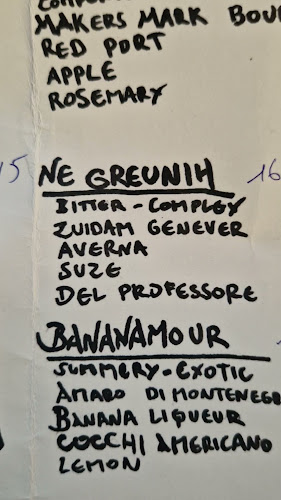 MAKERS MARK BOU
RED PORT
APPLE
ROSEMARY
15 NE GREUNIH 16
BITTER - COMPLEX
ZUIDAM GENEVER
AVERNA
SUZE
DEL PROFESSORE
BANANAMOUR
SUMMERY - EXOTIC
AMARO DI MONTENEG
BANANA LIQUEUR
COCCHI AMERICANO
LEMON